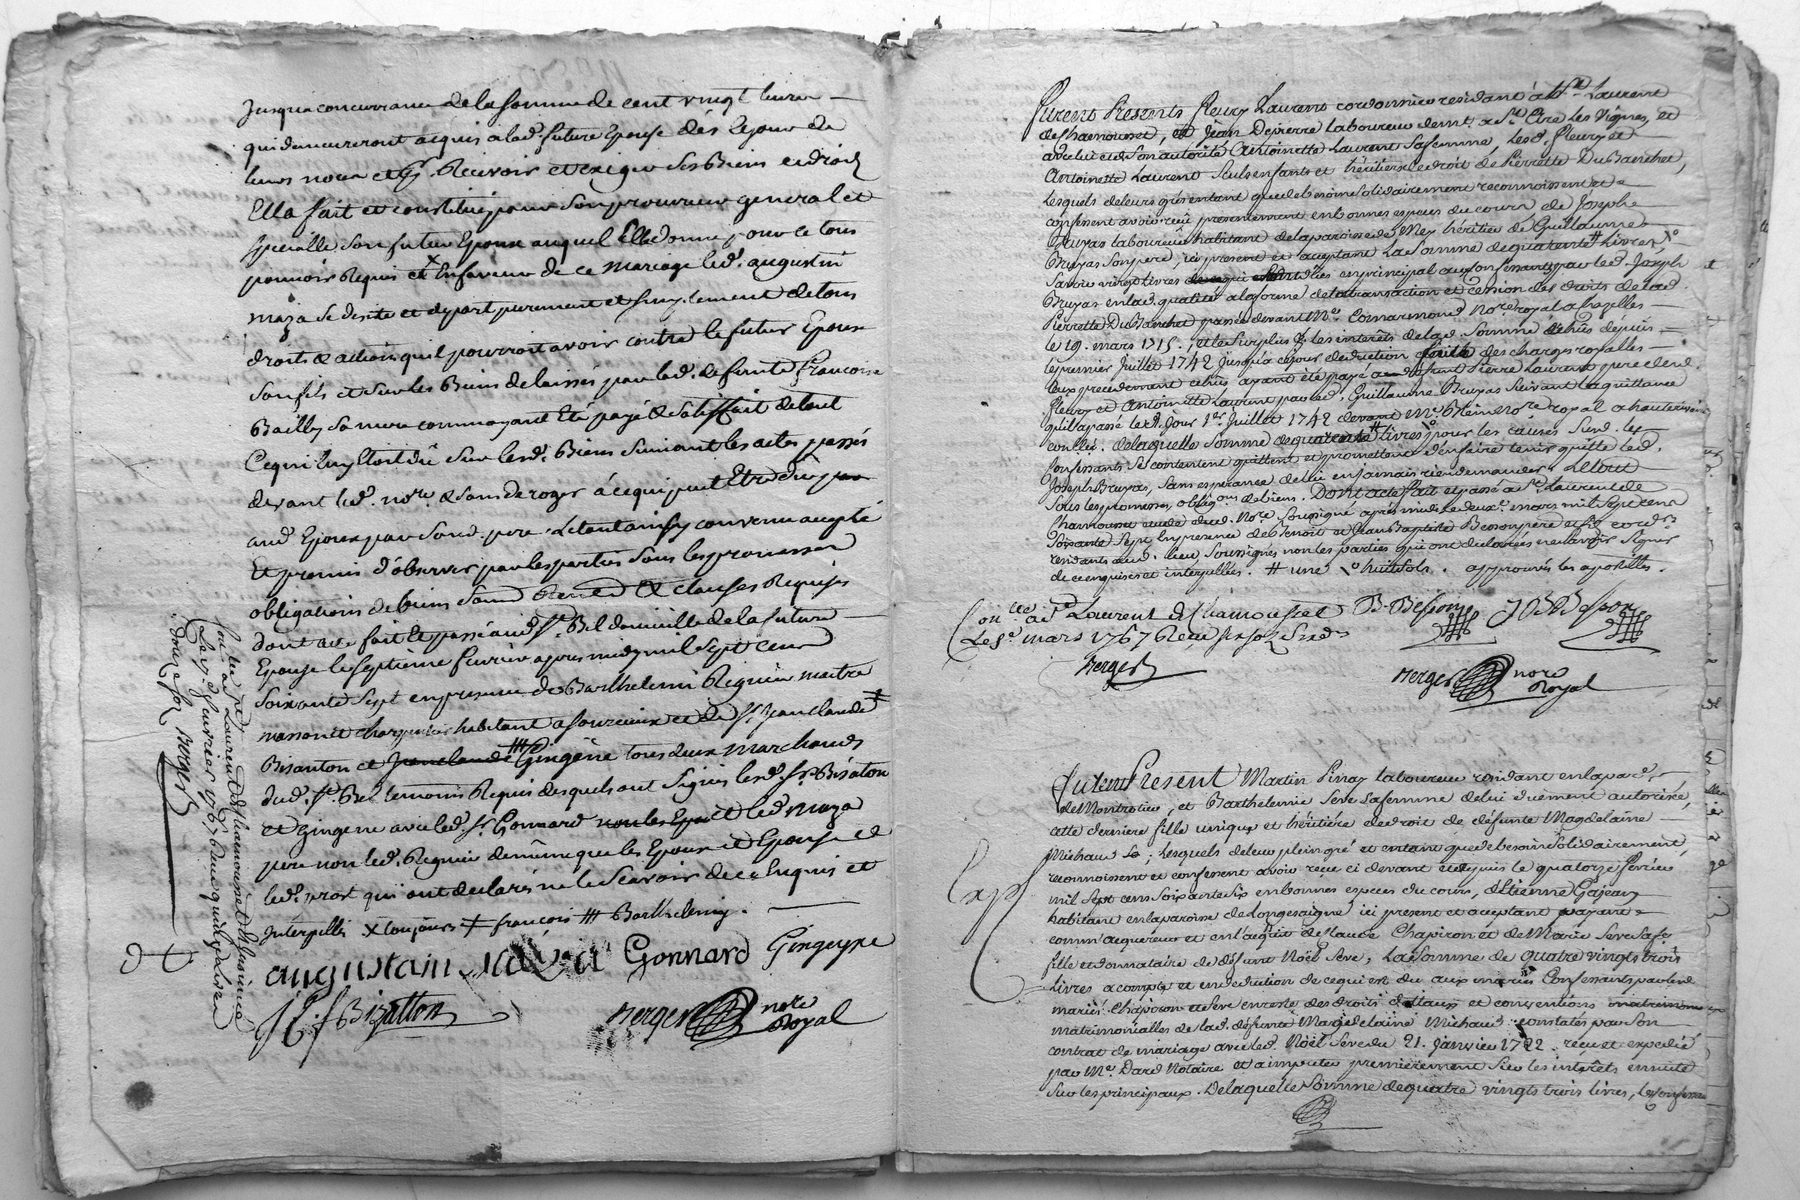 Jusqua concurrance de la somme de cent vingt livres
qui demeureront acquis a lad. future Epouse dés le jour de
leurs noces et pr. Recevoir et exiger ses Biens et droits
Ella fait et constitué pour son procureur general et
specialle son futur Epoux auquel Elle donne pour ce tous
pouvoir Requis et x En faveur de ce mariage led. augustin
maza se desiste et depart purement et simplement de tous
droits & actions qu'il pourroit avoir contre le futur Epoux
son fils et sur les Biens delaissés par lad. defunte Françoise
Bailly sa mere comme ayant Eté payé & satisfait de tout
Ce qui luy Etoit dû sur lesd. Biens suivant les actes passés
devant led. nore. & sans deroger à ce qui peut Etre dû par
aud. Epoux par sond. pere. Le tout ainsy convenu accepté
Et promis d'observer par les parties sous les promesses
obligations de biens & clauses Requises
dont acte fait Et passé aud. St. Bel domicille de la future
Epouse le septième fevrier apres midy mil sept cent
soixante sept en presence de Barthelemi Requin maitre
masson et charpentier habitant a Sourcieux et de sr. Jean claude
Bisanton et Jean claude Gingéne tous deux marchands
dud. St. Bel temoins Requis desquels ont signés lesd. srs. Bisaton
et Gingene avec led. sr. Gonnard et led. maza
pere non led. Requin de même que les Epoux et Epouse et
led. prost qui ont declarés ne le scavoir de ce Enquis et
interpellés x toujours + françois ||| Barthelemy.
augustain maza Gonnard Gingeyne
J C. Bizatton
Berger nore Royal
con.lé a St Laurent de Chamousset
Le 17 fevrier 1767 Reçu
douze sols Berger
Furent Presents Fleury Laurent cordonnier residant à St. Laurent
de Chamousset, et Jean Depierre laboureur demt. a Ste. Etre les Vignes, et
avec lui et de son autorité Antoinette Laurent sa femme, lesd. Fleury et
Antoinette Laurent seuls enfants et héritiers de droit de Pierrette Du Banchet,
lesquels de leurs gré en tant que de besoin solidairement reconnoissent et
confessent avoir reçu presentement en bonnes especes du cours de Josephe
Bruyas laboureur habitant de la paroisse de Meys héritier de Guillaume
Bruyas son pere, ici present et acceptant la somme de quarante # livres,
savoir vingt livres dues en principal aux confessants par led. Joseph
Bruyas en lad. qualité a la forme de la transaction et cession des droits de lad.
Pierrette Du Banchet passée devant Me. Comarmond nore royal a hazelles
le 19. mars 1715. et le surplus p. les interêts de lad. somme échus depuis
le premier Juillet 1742 jusqu'a ce jour deduction faite des charges royalles
ceux precedemment échus ayant été payé a defunt Pierre Laurent pere desd.
Fleury et Antoinette Laurent par led. Guillaume Bruyas suivant la quittance
qu'il a passé led. jour 1er Juillet 1742 devant Me. nore royal a hauterivoire
conllé. de laquelle somme de quarante # livres pour les causes susd. les
confessants se contentent quittent et promettent d'en faire tenir quitte led.
Joseph Bruyas, sans esperance de lui en jamais rien demander. Le tout
sous les promesses, obligons. de biens. Dont acte fait et passé a St. Laurent de
Chamousset etude dud. Nore. soussigné apres midi le deuxe. mars mil sept cens
soixante sept en presence de Benoit et Jean Baptiste Besson pere et fils cordrs.
residants aud. lieu soussignés non les parties qui ont declarées ne savoir signer
de ce enquises et interpellées. # une huit sols. approuvés les apostilles.
Con.lée a St Laurent de Chamousset
Le mars 1767 Reçu
B. Besson J B Besson
Berger
Berger nore Royal
Furent Present Martin Pinay laboureur residant en la parse.
de Montrotier, et Barthelemie Seve sa femme de lui dûement autorisée,
cette derniere fille unique et héritiére de droit de défunte Magdelaine
Michaud; lesquels de leur plein gré et en tant que de besoin solidairement,
reconnoissent et confessent avoir reçu ci devant et depuis le quatorze fevrier
mil sept cens soixante six en bonnes especes du cours, d'Etienne Gajean
habitant en la paroisse de Longessaigne ici present et aceptant payant
comm'acquereur et en l'acquit de Claude Chapiron et de Marie Seve sa fe.
fille et donnataire de défunt Noël Seve, la somme de quatre vingts trois
livres a compte et en deduction de ce qui est du aux mariés confessants par lesd.
mariés Chapiron et Seve en reste des droits dottaux et conventions
matrimonialles de lad. défunte Magdelaine Michaud constatés par son
contrat de mariage avec led. Noël Seve du 21. Janvier 1722 reçu et expedié
par Me. Dard Notaire et a imputer premierement sur les interêts ensuite
sur les principaux. De laquelle somme de quatre vingts trois livres, les confessans